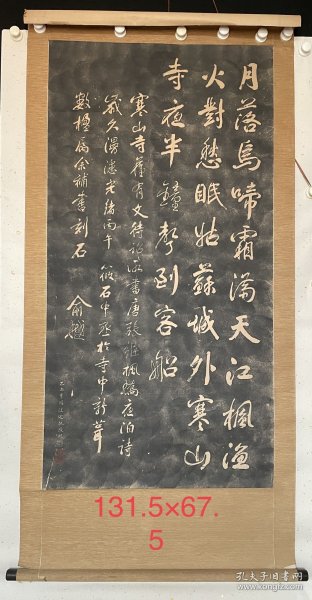 月落烏啼霜滿天江楓漁
火對愁眠姑蘇城外寒山
寺夜半鐘聲到客船
寒山寺舊有文待詔所書唐張繼楓橋夜泊詩
歲久漫漶光緒丙午筱石中丞於寺中新葺
數楹屬余補書刻石
俞樾
131.5×67.
5
孔夫子旧书网